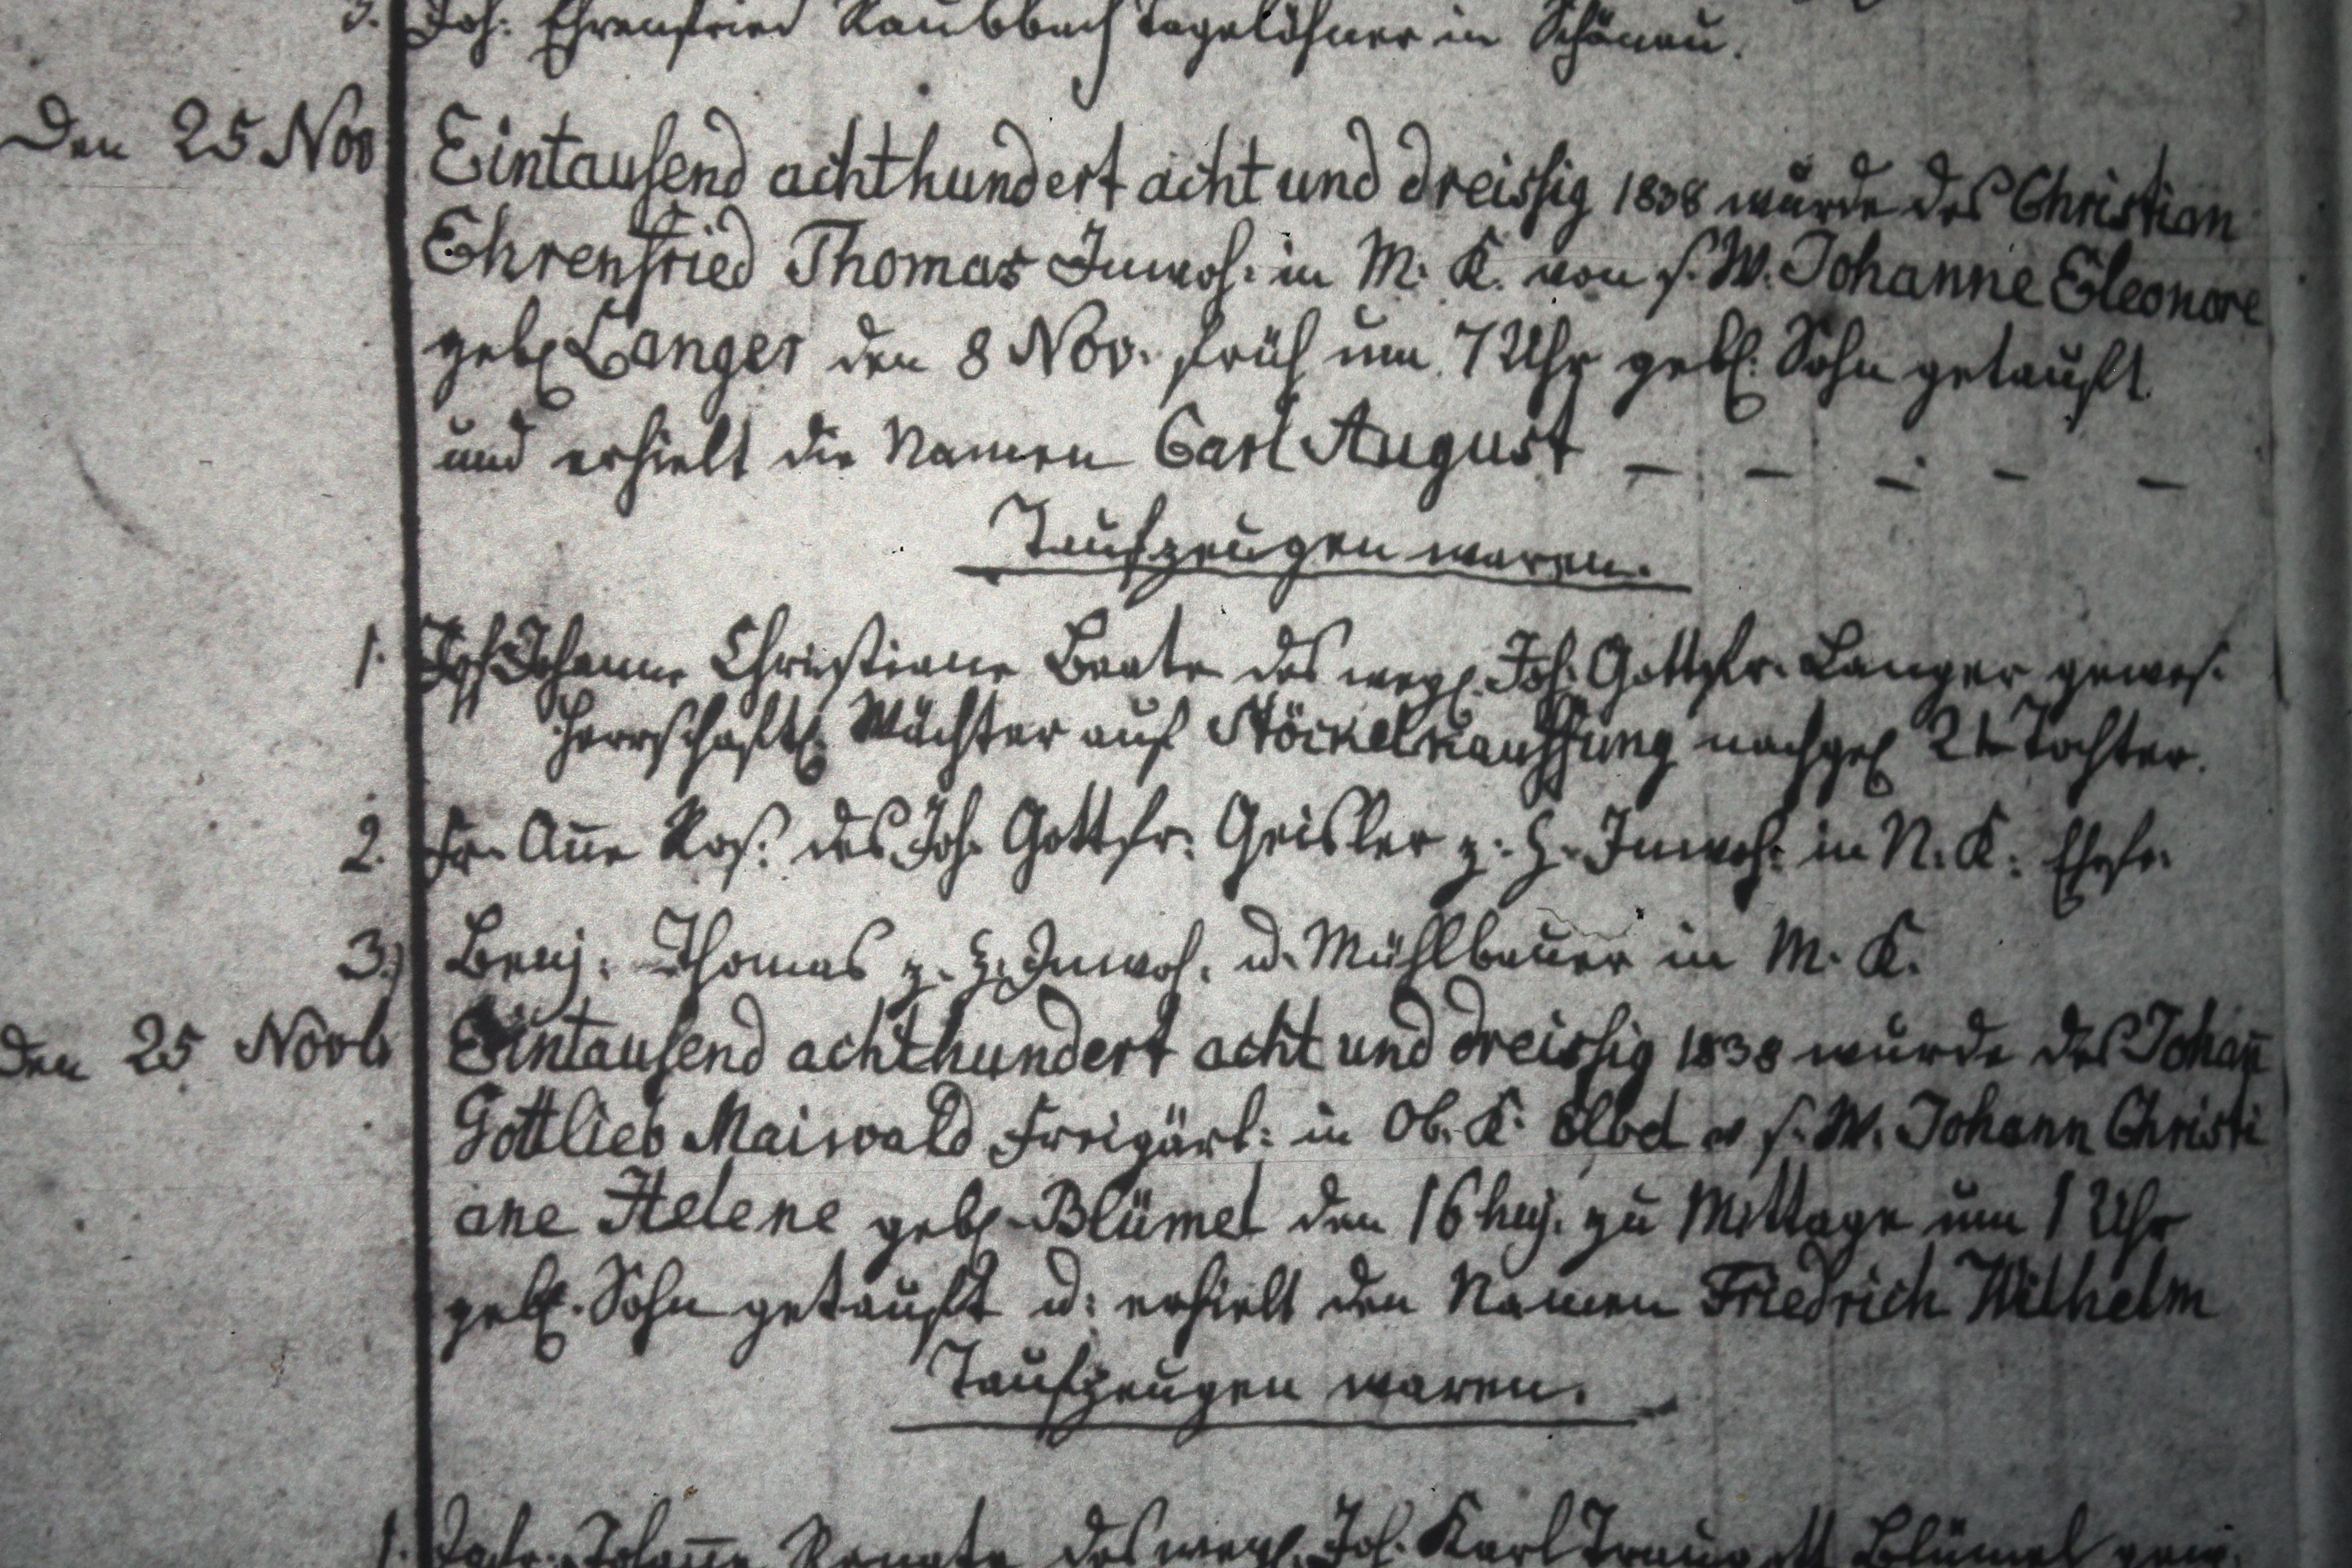 3. Joh: Ehrenfried Raubbach Tagelöhner in Schönau.
Den 25 Nov Eintausend achthundert acht und dreissig 1838 wurde des Christian
Ehrenfried Thomas Inwoh: in M. K. von s. W. Johanne Eleonore
geb. Langer den 8 Nov. früh um 7 Uhr gebl. Sohn getauft
und erhielt die Namen Carl August – – – – –
Taufzeugen waren.
1. Johanne Christiane Beate des weyl. Joh. Gottfr. Langer gewes.
Herrschaftl. Wächter auf Stöckelkauffung nachgel 2te Tochter.
2. Fr. Añe Ros: des Joh. Gottfr. Geisler z. Z. Inwoh: in N. K. Ehefr.
3.) Benj. Thomas z. Z. Inwoh. u. Mühlbauer in M. K.
Den 25 Novb Eintausend achthundert acht und dreissig 1838 wurde des Johañ
Gottlieb Maiwald Freigärt: in Ob. K. v s. W. Johann Christi
ane Helene geb. Blümel den 16 huj. zu Mittage um 1 Uhr
gebl. Sohn getauft u: erhielt den Namen Friedrich Wilhelm
Taufzeugen waren.
1. Jgfr. Johañe Renate des weyl. Joh. Karl Traugott Blümel